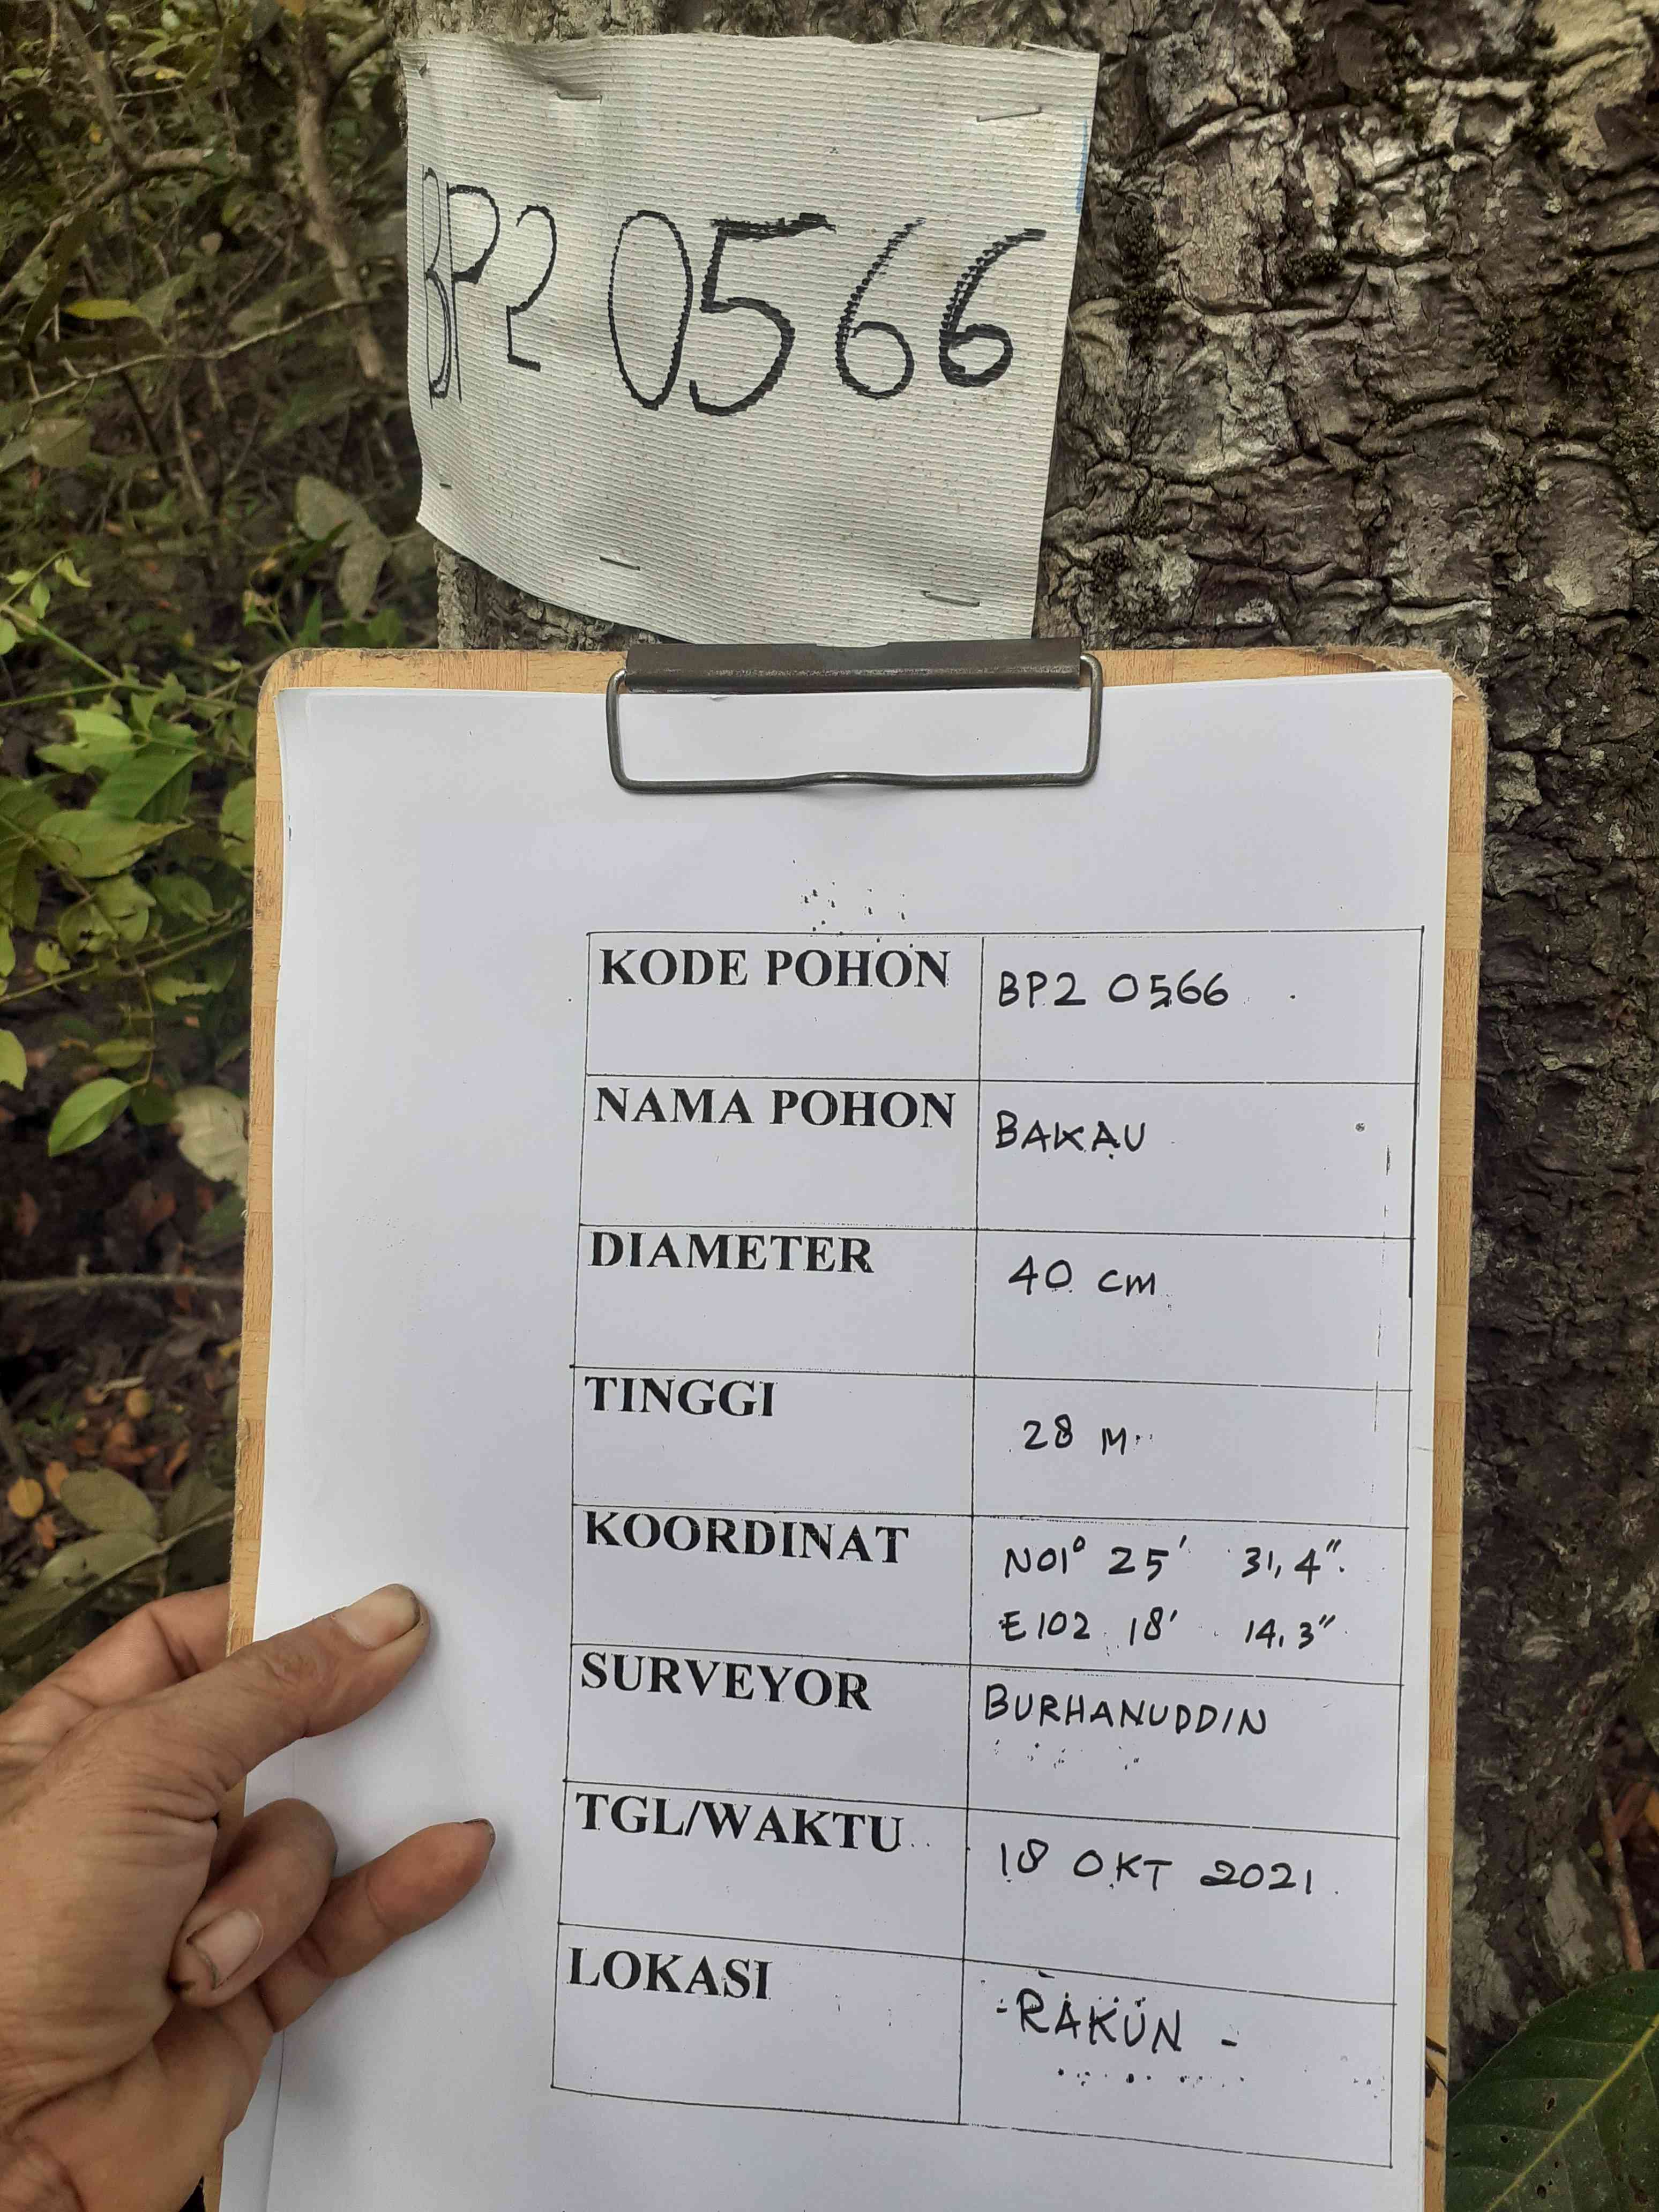 BP2 0566
KODE POHON BP2 0566
NAMA POHON BAKAU
DIAMETER 40 cm
TINGGI 28 M
KOORDINAT N01° 25' 31,4"
E102 18' 14,3"
SURVEYOR BURHANUDDIN
TGL/WAKTU 18 OKT 2021
LOKASI -RAKUN -